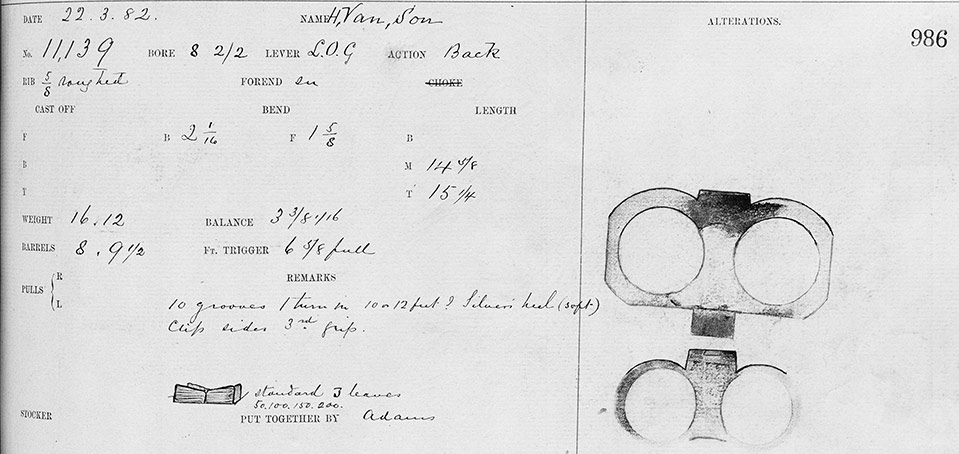 DATE 22.3.82. NAME H, Van, Son
No. 11,139 BORE 8 2/2 LEVER L.O.G ACTION Back
RIB 5/8 roughed FOREND sn CHOKE
CAST OFF BEND LENGTH
F B 2 1/16 F 1 5/8 B
B M 14 5/8
T T 15 1/4
WEIGHT 16.12 BALANCE 3 3/8 1/16
BARRELS 8. 9 1/2 Ft. TRIGGER 6 5/8 full
PULLS R L
REMARKS
10 grooves 1 turn in 10 or 12 feet ? Silvers heel (soft)
Clip sides 3rd grip.
standard 3 leaves
50, 100, 150, 200.
STOCKER PUT TOGETHER BY Adams
ALTERATIONS.
986